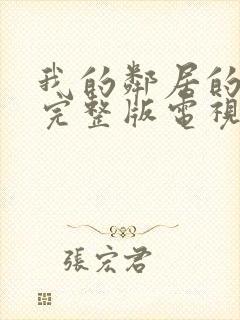 我的鄰居的
完整版電視
張宏君